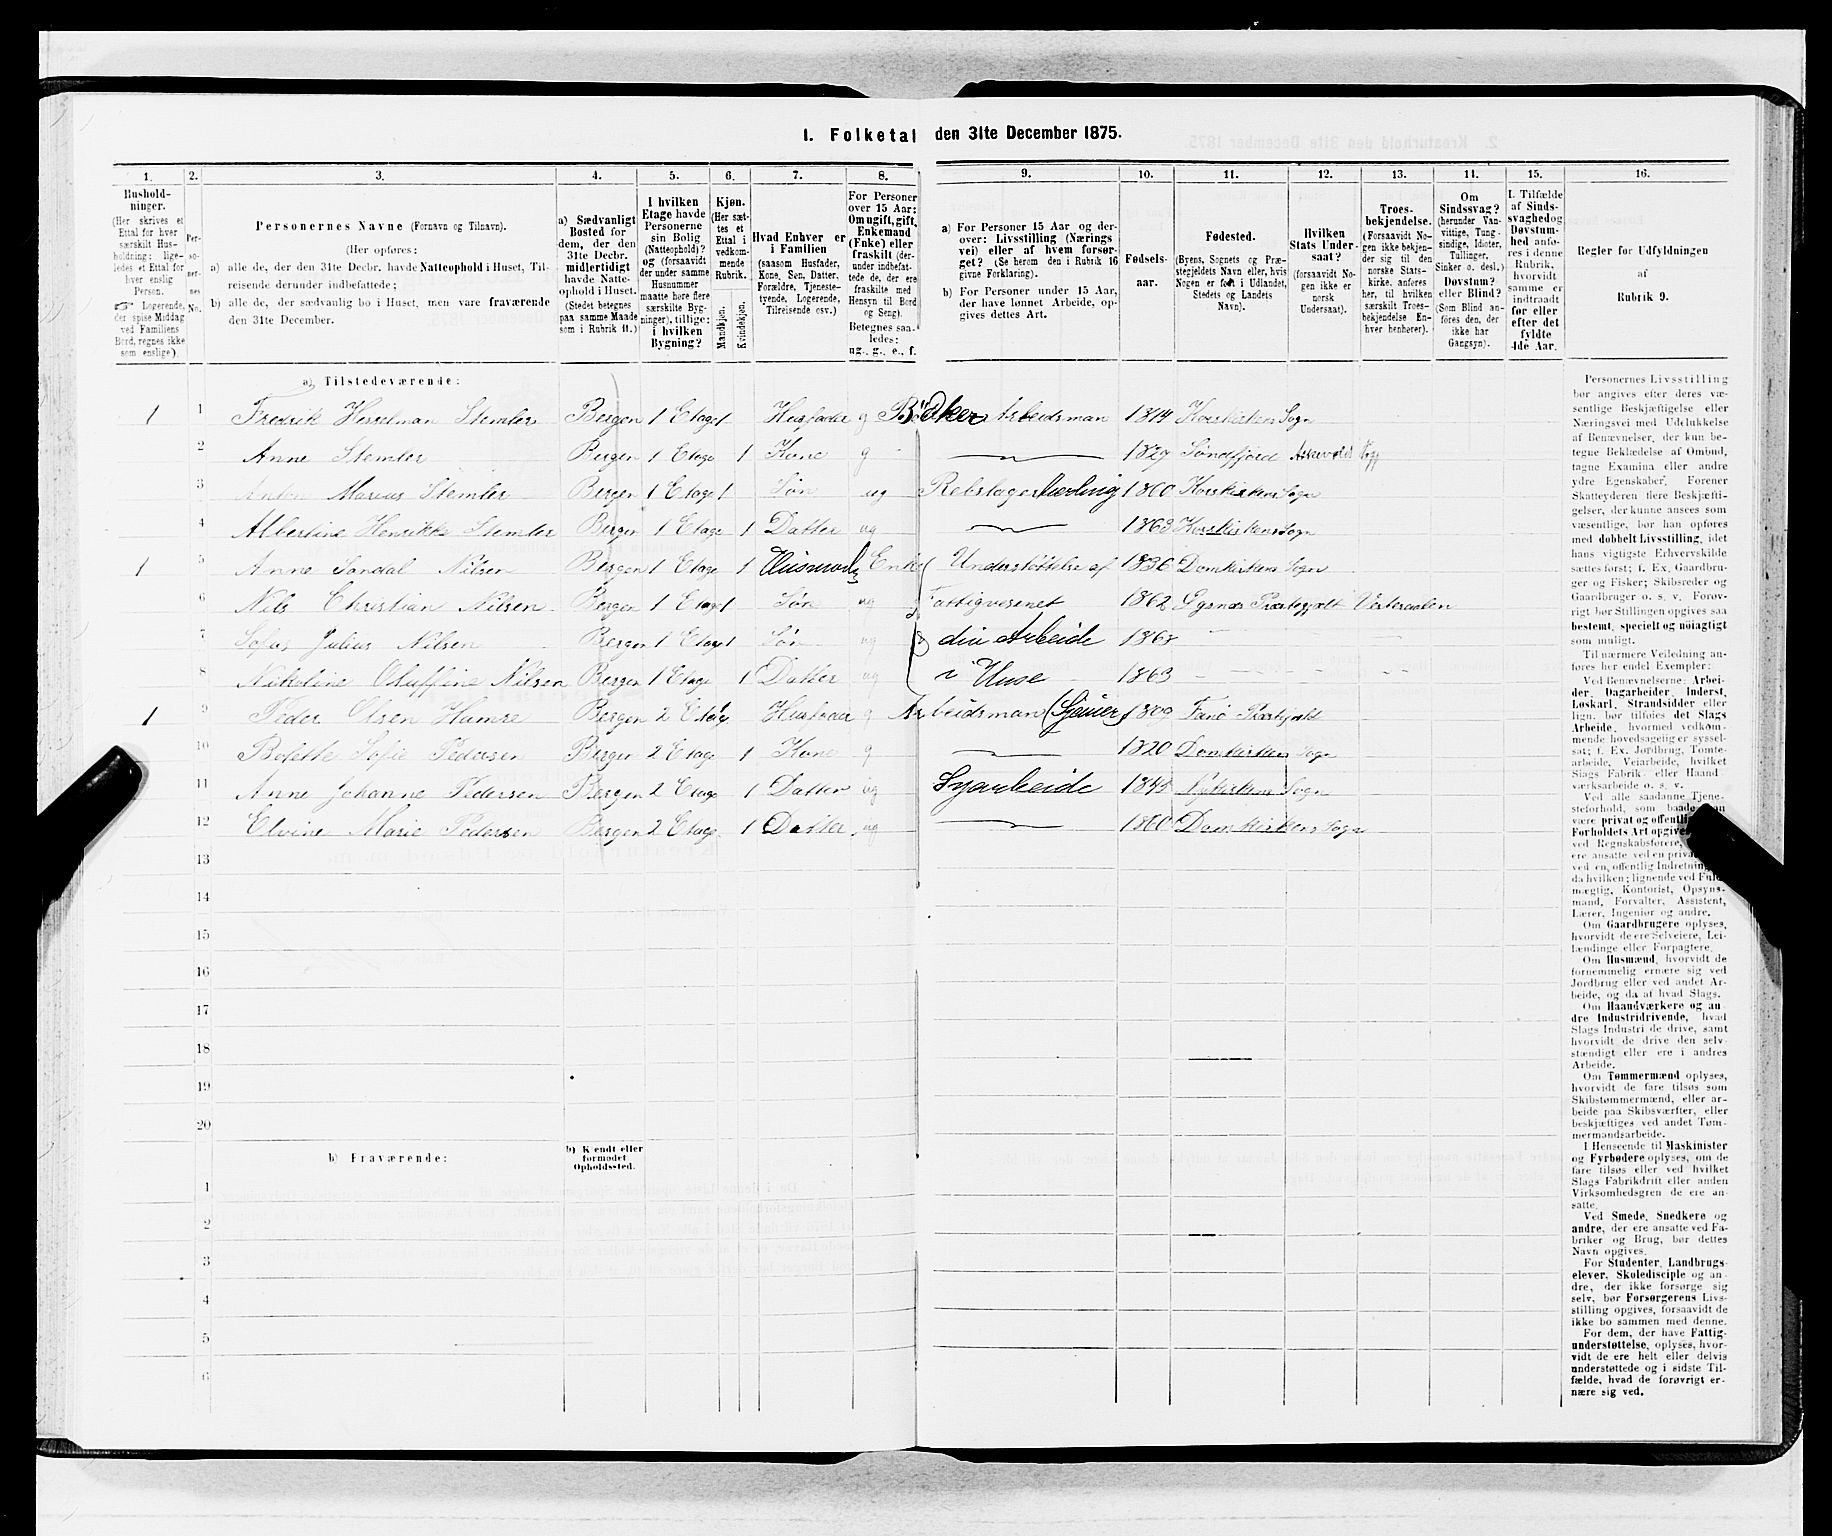 1. Folketal den 31te December 1875.
1. 2. 3. 4. 5. 6. 7. 8. 9. 10. 11. 12. 13. 14. 15. 16.
Hushold-
ninger.
(Her skrives et
Ettal for hver
særskilt Hus-
holdning; lige-
ledes et Ettal for
hver enslig
Person.
☞ Logerende,
der spise Middag
ved Familiens
Bord, regnes ikke
som enslige).
Per-
so-
ner-
nes
No.
Personernes Navne (Fornavn og Tilnavn).
(Her opføres:
a) alle de, der den 31te Decbr. havde Natteophold i Huset, Til-
reisende derunder indbefattede;
b) alle de, der sædvanlig bo i Huset, men vare fraværende
den 31te December.
a) Sædvanligt
Bosted for
dem, der den
31te Decbr.
midlertidigt
havde Natte-
ophold i Huset.
(Stedet betegnes
paa samme Maade
som i Rubrik 11.)
I hvilken
Etage havde
Personerne
sin Bolig
(Natteophold)?
og (forsaavidt
der under samme
Husnummer
maatte høre flere
særskilte Byg-
ninger), tillige:
i hvilken
Bygning?
Kjøn.
(Her sæt-
tes et
Ettal i
vedkom-
mende
Rubrik.
Mandkjøn.
Kvindekjøn.
Hvad Enhver er
i Familien
(saasom Husfader,
Kone, Søn, Datter,
Forældre, Tjeneste-
tyende, Logerende,
Tilreisende osv.)
For Personer
over 15 Aar:
Om ugift, gift,
Enkemand
(Enke) eller
fraskilt (der-
under indbefat-
tede de, der ere
fraskilte med
Hensyn til Bord
og Seng).
Betegnes saa-
ledes:
ug., g., e., f.
a) For Personer 15 Aar og der-
over: Livsstilling (Nærings
vei) eller af hvem forsør-
get? (Se herom den i Rubrik 16
givne Forklaring).
b) For Personer under 15 Aar,
der have lønnet Arbeide, op-
gives dettes Art.
Fødsels-
aar.
Fødested.
(Byens, Sognets og Præ-
stegjeldets Navn eller, hvis
Nogen er født i Udlandet,
Stedets og Landets
Navn).
Hvilken
Stats Under-
saat?
(forsaavidt No-
gen ikke er
norsk
Undersaat).
Troes-
bekjendelse.
(Forsaavidt No-
gen ikke bekjen-
der sig til den
norske Stats-
kirke, anføres
her, til hvilken
særskilt Troes-
bekjendelse En-
hver henhører).
Om
Sindssvag?
(herunder Van-
vittige, Tung-
sindige, Idioter,
Tullinger,
Sinker o. desl.)
Døvstum?
eller Blind?
(Som Blind an-
føres den, der
ikke har
Gangsyn).
I Tilfælde
af Sinds-
svaghed og
Døvstum-
hed anfø-
res i denne
Rubrik,
hvorvidt
samme er
indtraadt
før eller
efter det
fyldte
4de Aar.
Regler for Udfyldningen
af
Rubrik 9.
a) Tilstedeværende:
1 1 Fredrik Hesselman Stemler Bergen 1 Etage 1 Husfader g Bødker Arbeidsman 1814 Korskirkens Sogn
2 Anne Stemler Bergen 1 Etage 1 Kone g 1829 Søndfjord Askevold
3 Anton Marius Stemler Bergen 1 Etage 1 Søn ug Rebslagerlærling 1860 Korskirkens Sogn
4 Albertine Henrikke Stemler Bergen 1 Etage 1 Datter ug 1863 Korskirkens Sogn
1 5 Anne Sandal Nilsen Bergen 1 Etage 1 Enke Understøttelse af 1836 Domkirkens Sogn
6 Nils Christian Nilsen Bergen 1 Etage 1 Søn ug Fattigvesenet 1862 Præstegjeld Vesteraalen
7 Sofus Julius Nilsen Bergen 1 Etage 1 Søn ug Arbeide 1868
8 Nikoline Oluffine Nilsen Bergen 1 Etage 1 Datter ug i Huse 1863
1 9 Peder Olsen Hamre Bergen 2 Etage Husfader g Arbeidsman 1809 Fanø
10 Bolette Sofie Pedersen Bergen 2 Etage 1 Kone g 1820 Domkirkens Sogn
11 Anne Johanne Pedersen Bergen 2 Etage 1 Datter ug Syarbeide 1845 Nykirkens Sogn
12 Elvine Marie Pedersen Bergen 2 Etage 1 Datter ug 1860 Domkirkens Sogn
13
14
15
16
17
18
19
20
b) Fraværende:
b) Kjendt eller
formodet
Opholdssted.
1
2
3
4
5
6
Personernes Livsstilling
bør angives efter deres væ-
sentlige Beskjæftigelse eller
Næringsvei med Udelukkelse
af Benævnelser, der kun be-
tegne Beklædelse af Ombud,
tagne Examina eller andre
ydre Egenskaber. Forener
Skatteyderen flere Beskjæfti-
gelser, der kunne ansees som
væsentlige, bør han opføres
med dobbelt Livsstilling, idet
hans vigtigste Erhvervskilde
sættes først; f. Ex. Gaardbru-
ger og Fisker; Skibsreder og
Gaardbruger o. s. v. Forøv-
rigt bør Stillingen opgives saa
bestemt, specielt og nøiagtigt
som muligt.
Til nærmere Veiledning an-
føres her endel Exempler:
Ved Benævnelserne: Arbei-
der, Dagarbeider, Inderst,
Løskarl, Strandsidder eller
lign. bør tilføies det Slags
Arbeide, hvormed vedkom-
mende hovedsagelig er syssel-
sat; f. Ex. Jordbrug, Tomte-
arbeide, Veiarbeide, hvilket
Slags Fabrik- eller Haand-
værksarbeide o. s. v.
Ved alle saadanne Tjene-
steforhold, som baade kan
være privat og offentlig,
Forholdets Art opgives,
ved Regnskabsførere,
ere ansatte ved en privat
ved en offentlig Indretning
da hvilken; lignende ved Fuld-
mægtig, Kontorist, Opsyns-
mand, Forvalter, Assistent,
Lærer, Ingeniør og andre.
Om Gaardbrugere oplyses,
hvorvidt de ere Selveiere, Lei-
lændinge eller Forpagtere.
Om Husmænd, hvorvidt de
fornemmelig ernære sig ved
Jordbrug eller ved andet Ar-
beide, og da af hvad Slags.
Om Haandværkere og an-
dre Industridrivende, hvad
Slags Industri de drive, samt
hvorvidt de drive den selv-
stændigt eller ere i andres
Arbeide.
Om Tømmermænd oplyses,
hvorvidt de fare tilsøs som
Skibstømmermænd, eller ar-
beide paa Skibsværfter, eller
beskjæftiges ved andet Tøm-
mermandsarbeide.
I Henseende til Maskinister
og Fyrbødere oplyses, om de
fare tilsøs eller ved hvilket
Slags Fabrikdrift eller anden
Virksomhedsgren de ere an-
satte.
Ved Smede, Snedkere og
andre, der ere ansatte ved Fa-
briker og Brug, bør dettes
Navn opgives.
For Studenter, Landbrugs-
elever, Skoledisciple og an-
dre, der ikke forsørge sig
selv, bør Forsørgerens Livs-
stilling opgives, forsaavidt de
ikke bo sammen med denne.
For dem, der have Fattig-
understøttelse, oplyses, hvor-
vidt de ere helt eller delvis
understøttede og i sidste Til-
fælde, hvad de forøvrigt er-
nære sig ved.